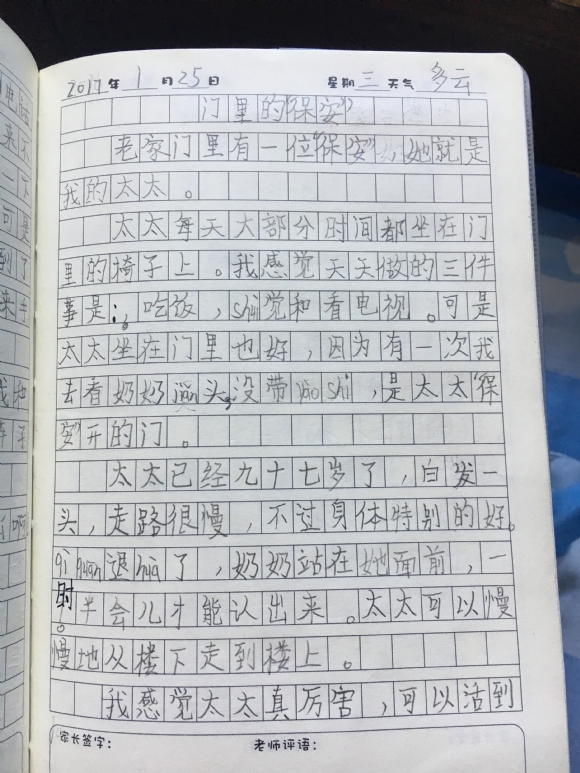 2017年1月25日 星期三 天气 多云
门里的“保安”
老家门里有一位“保安”，她就是
我的太太。
太太每天大部分时间都坐在门
里的椅子上。我感觉天天做的三件
事是：吃饭，shuì觉和看电视。可是
太太坐在门里也好，因为有一次我
去看奶奶jiǎn头，没带yào shi，是太太“保
安”开的门。
太太已经九十七岁了，白发一
头，走路很慢，不过身体特别的好。
qì guān退huà了，奶奶站在她面前，一
时半会儿才能认出来。太太可以慢
慢地从楼下走到楼上。
我感觉太太真厉害，可以活到
家长签字： 老师评语：